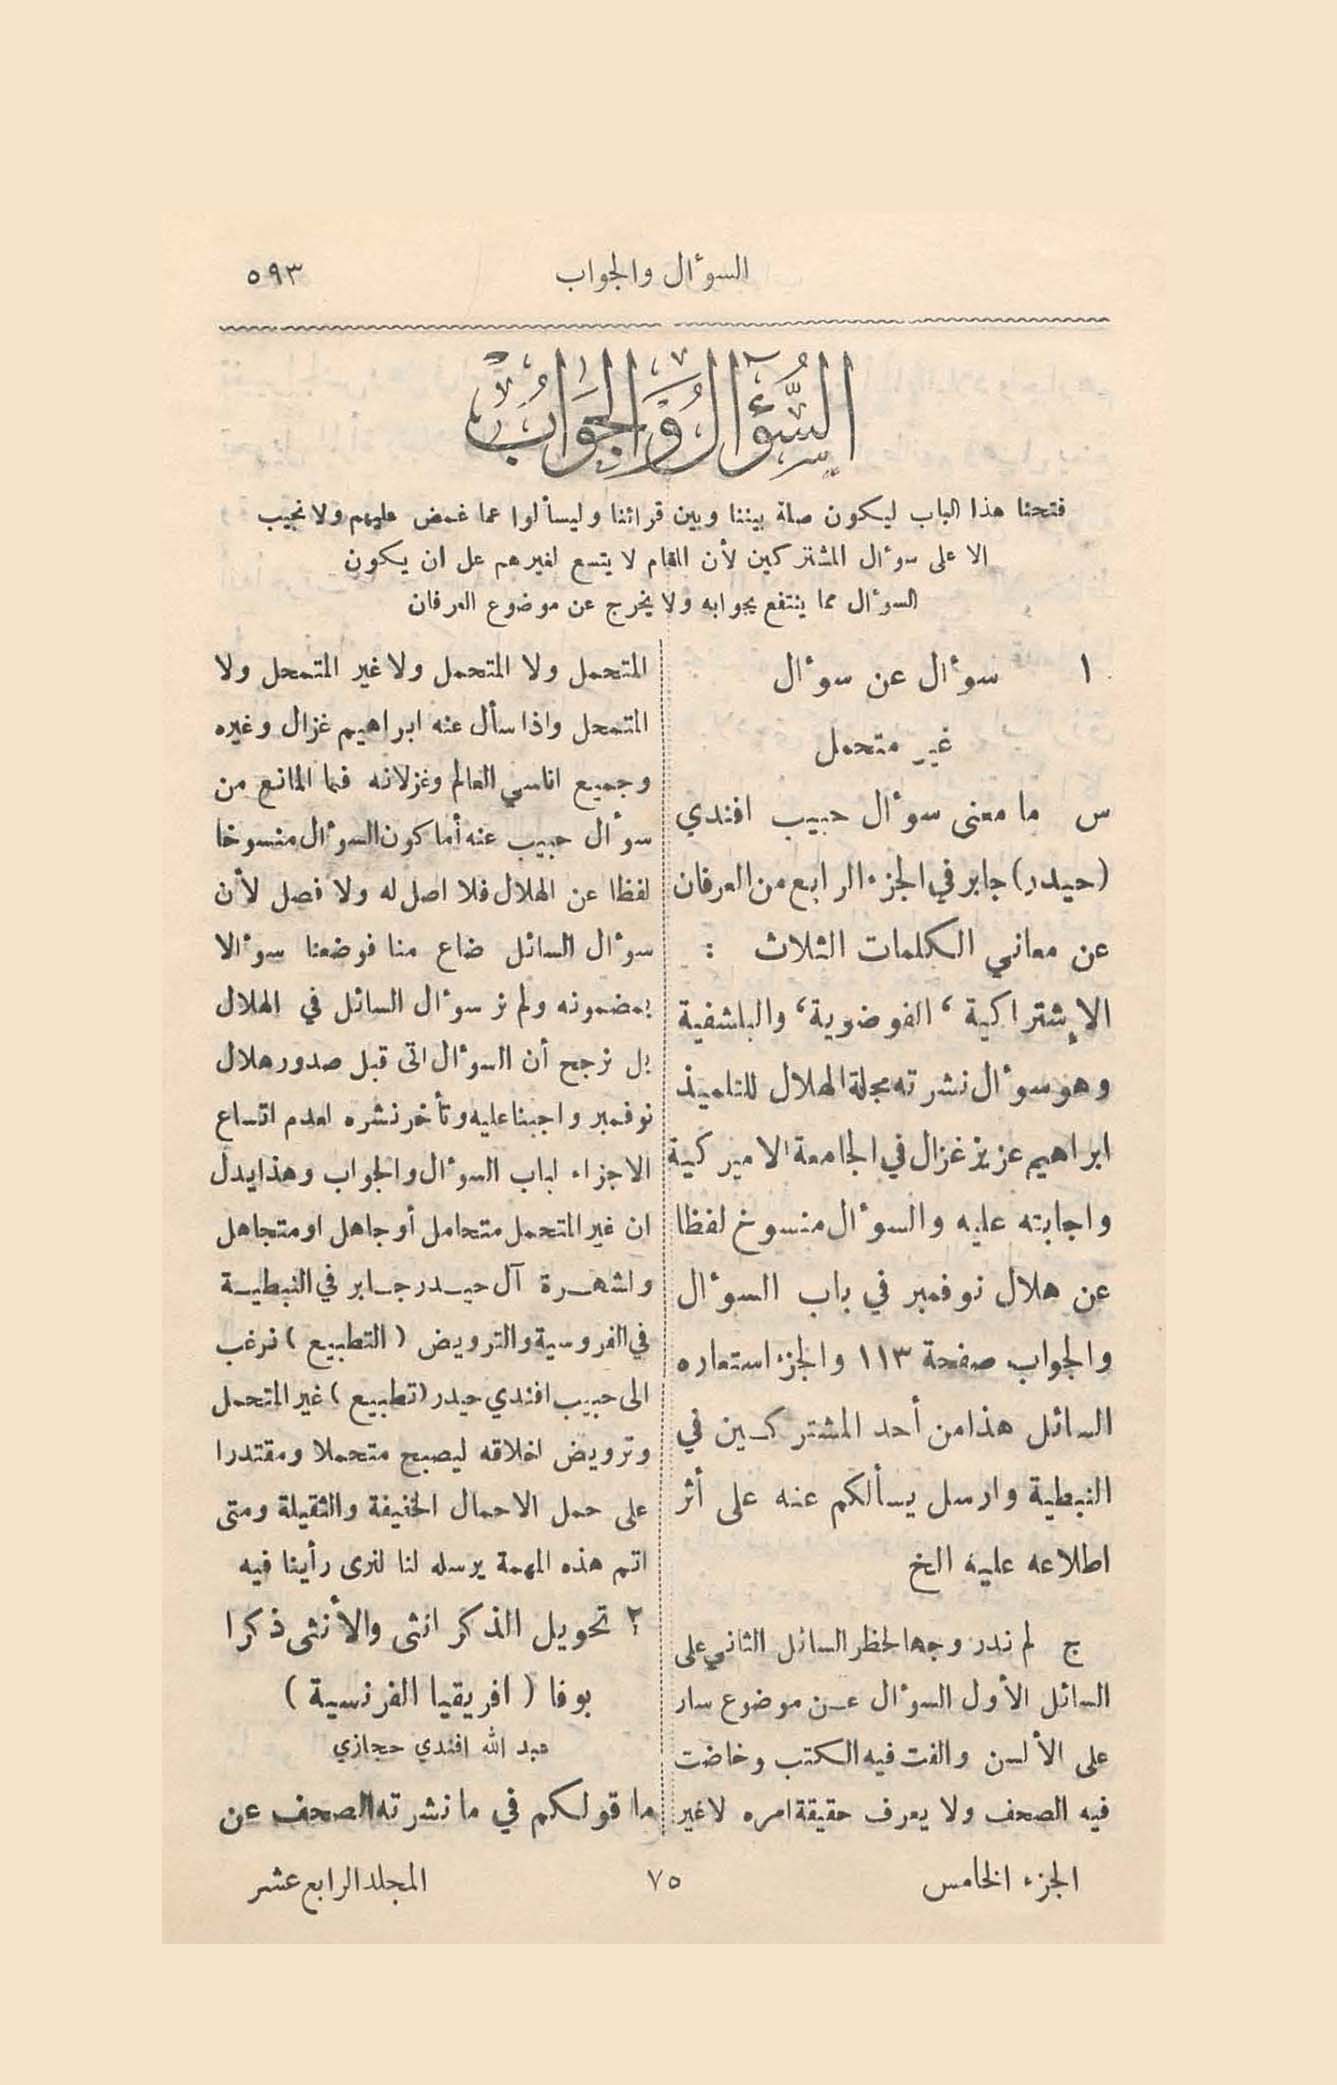 السوءال والجواب ٥٩٣
السُّؤَالُ وَالجَوَابُ
فتحنا هذا الباب ليكون صلة بيننا وبين قرائنا وليسألوا عما غمض عليهم ولا نجيب
الا على سوءال المشتركين لأن المقام لا يتسع لغيرهم على ان يكون
السوءال مما ينتفع بجوابه ولا يخرج عن موضوع العرفان
١ سوءال عن سوءال
غير متحمل
س ما معنى سوءال حبيب افندي
(حيدر) جابر في الجزء الرابع من العرفان
عن معاني الكلمات الثلاث :
الإشتراكية ، الفوضوية ، والبلشفية
وهو سوءال نشرته مجلة الهلال للتلميذ
ابراهيم عزيز غزال في الجامعة الاميركية
واجابته عليه والسوءال منسوخ لفظا
عن هلال نوفمبر في باب السوءال
والجواب صفحة ١١٣ والجزء استعاره
السائل هذا من أحد المشتركين في
النبطية وارسل يسألكم عنه على أثر
اطلاعه عليه الخ
ج لم ندر وجها لحظر السائل الثاني على
السائل الأول السوءال عن موضوع سار
على الألسن والفت فيه الكتب وخاضت
فيه الصحف ولا يعرف حقيقة امره لا غير
المتحمل ولا المتحمل ولا غير المتمحل ولا
المتمحل واذا سأل عنه ابراهيم غزال وغيره
وجميع اناسي العالم وغزلانه فما المانع من
سوءال حبيب عنه أما كون السوءال منسوخا
لفظا عن الهلال فلا اصل له ولا فصل لأن
سوءال السائل ضاع منا فوضعنا سوءالا
بمضمونه ولم نر سوءال السائل في الهلال
بل نرجح أن السوءال اتى قبل صدور هلال
نوفمبر واجبنا عليه وتأخر نشره لعدم اتساع
الاجزاء لباب السوءال والجواب وهذا يدل
ان غير المتحمل متحامل أو جاهل او متجاهل
ولشهرة آل حيدر جابر في النبطية
في الفروسية والترويض (التطبيع) نرغب
الى حبيب افندي حيدر (تطبيع) غير المتحمل
وترويض اخلاقه ليصبح متحملا ومقتدرا
على حمل الاحمال الخفيفة والثقيلة ومتى
اتم هذه المهمة يرسله لنا لنرى رأينا فيه
٢ تحويل الذكر انثى والأنثى ذكرا
بوفا (افريقيا الفرنسية)
عبد الله افندي حجازي
ما قولكم في ما نشرته الصحف عن
الجزء الخامس ٧٥ المجلد الرابع عشر